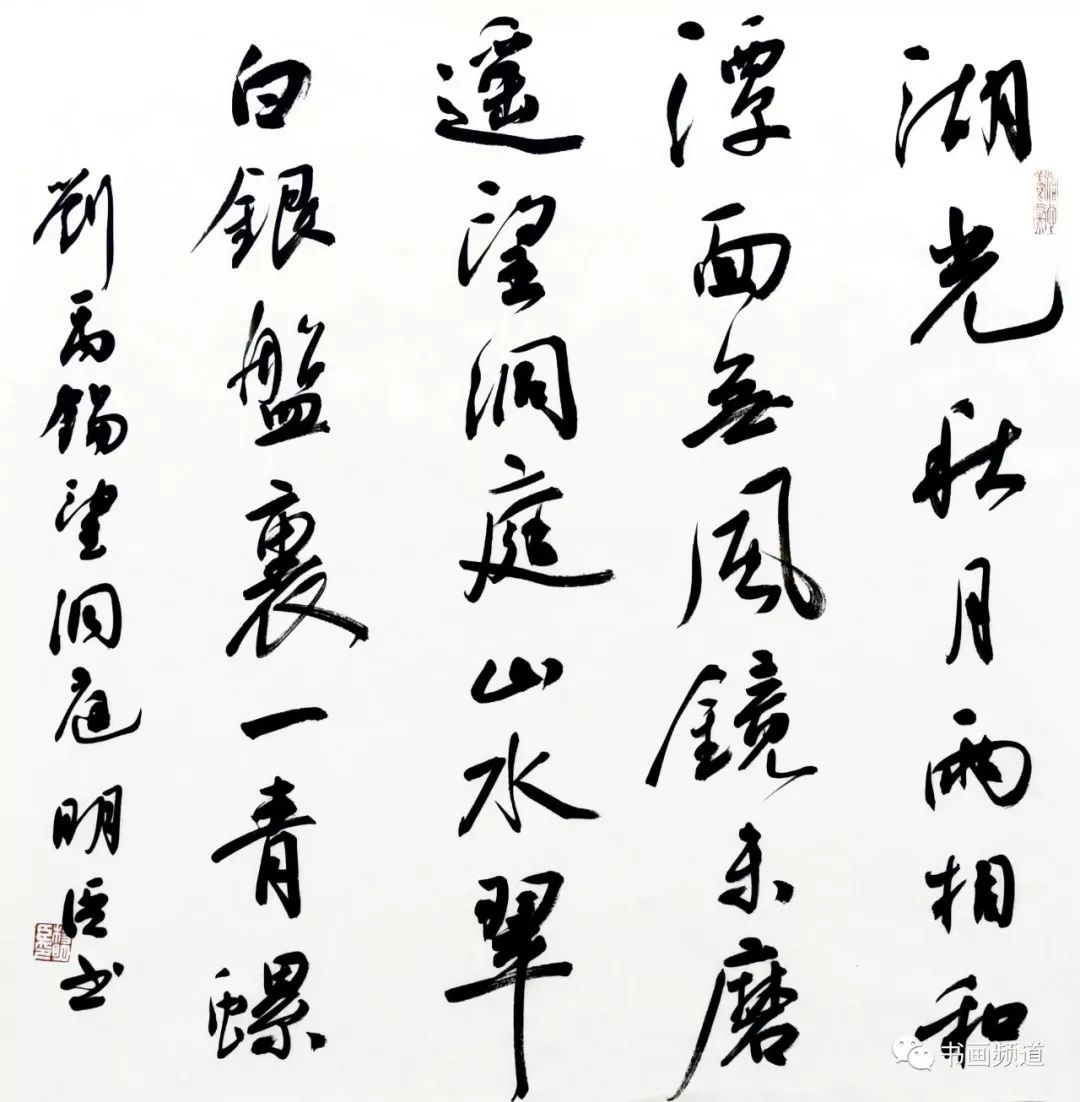 湖光秋月兩相和
潭面無風鏡未磨
遥望洞庭山水翠
白銀盤裏一青螺
劉禹錫望洞庭 明 书
书画频道